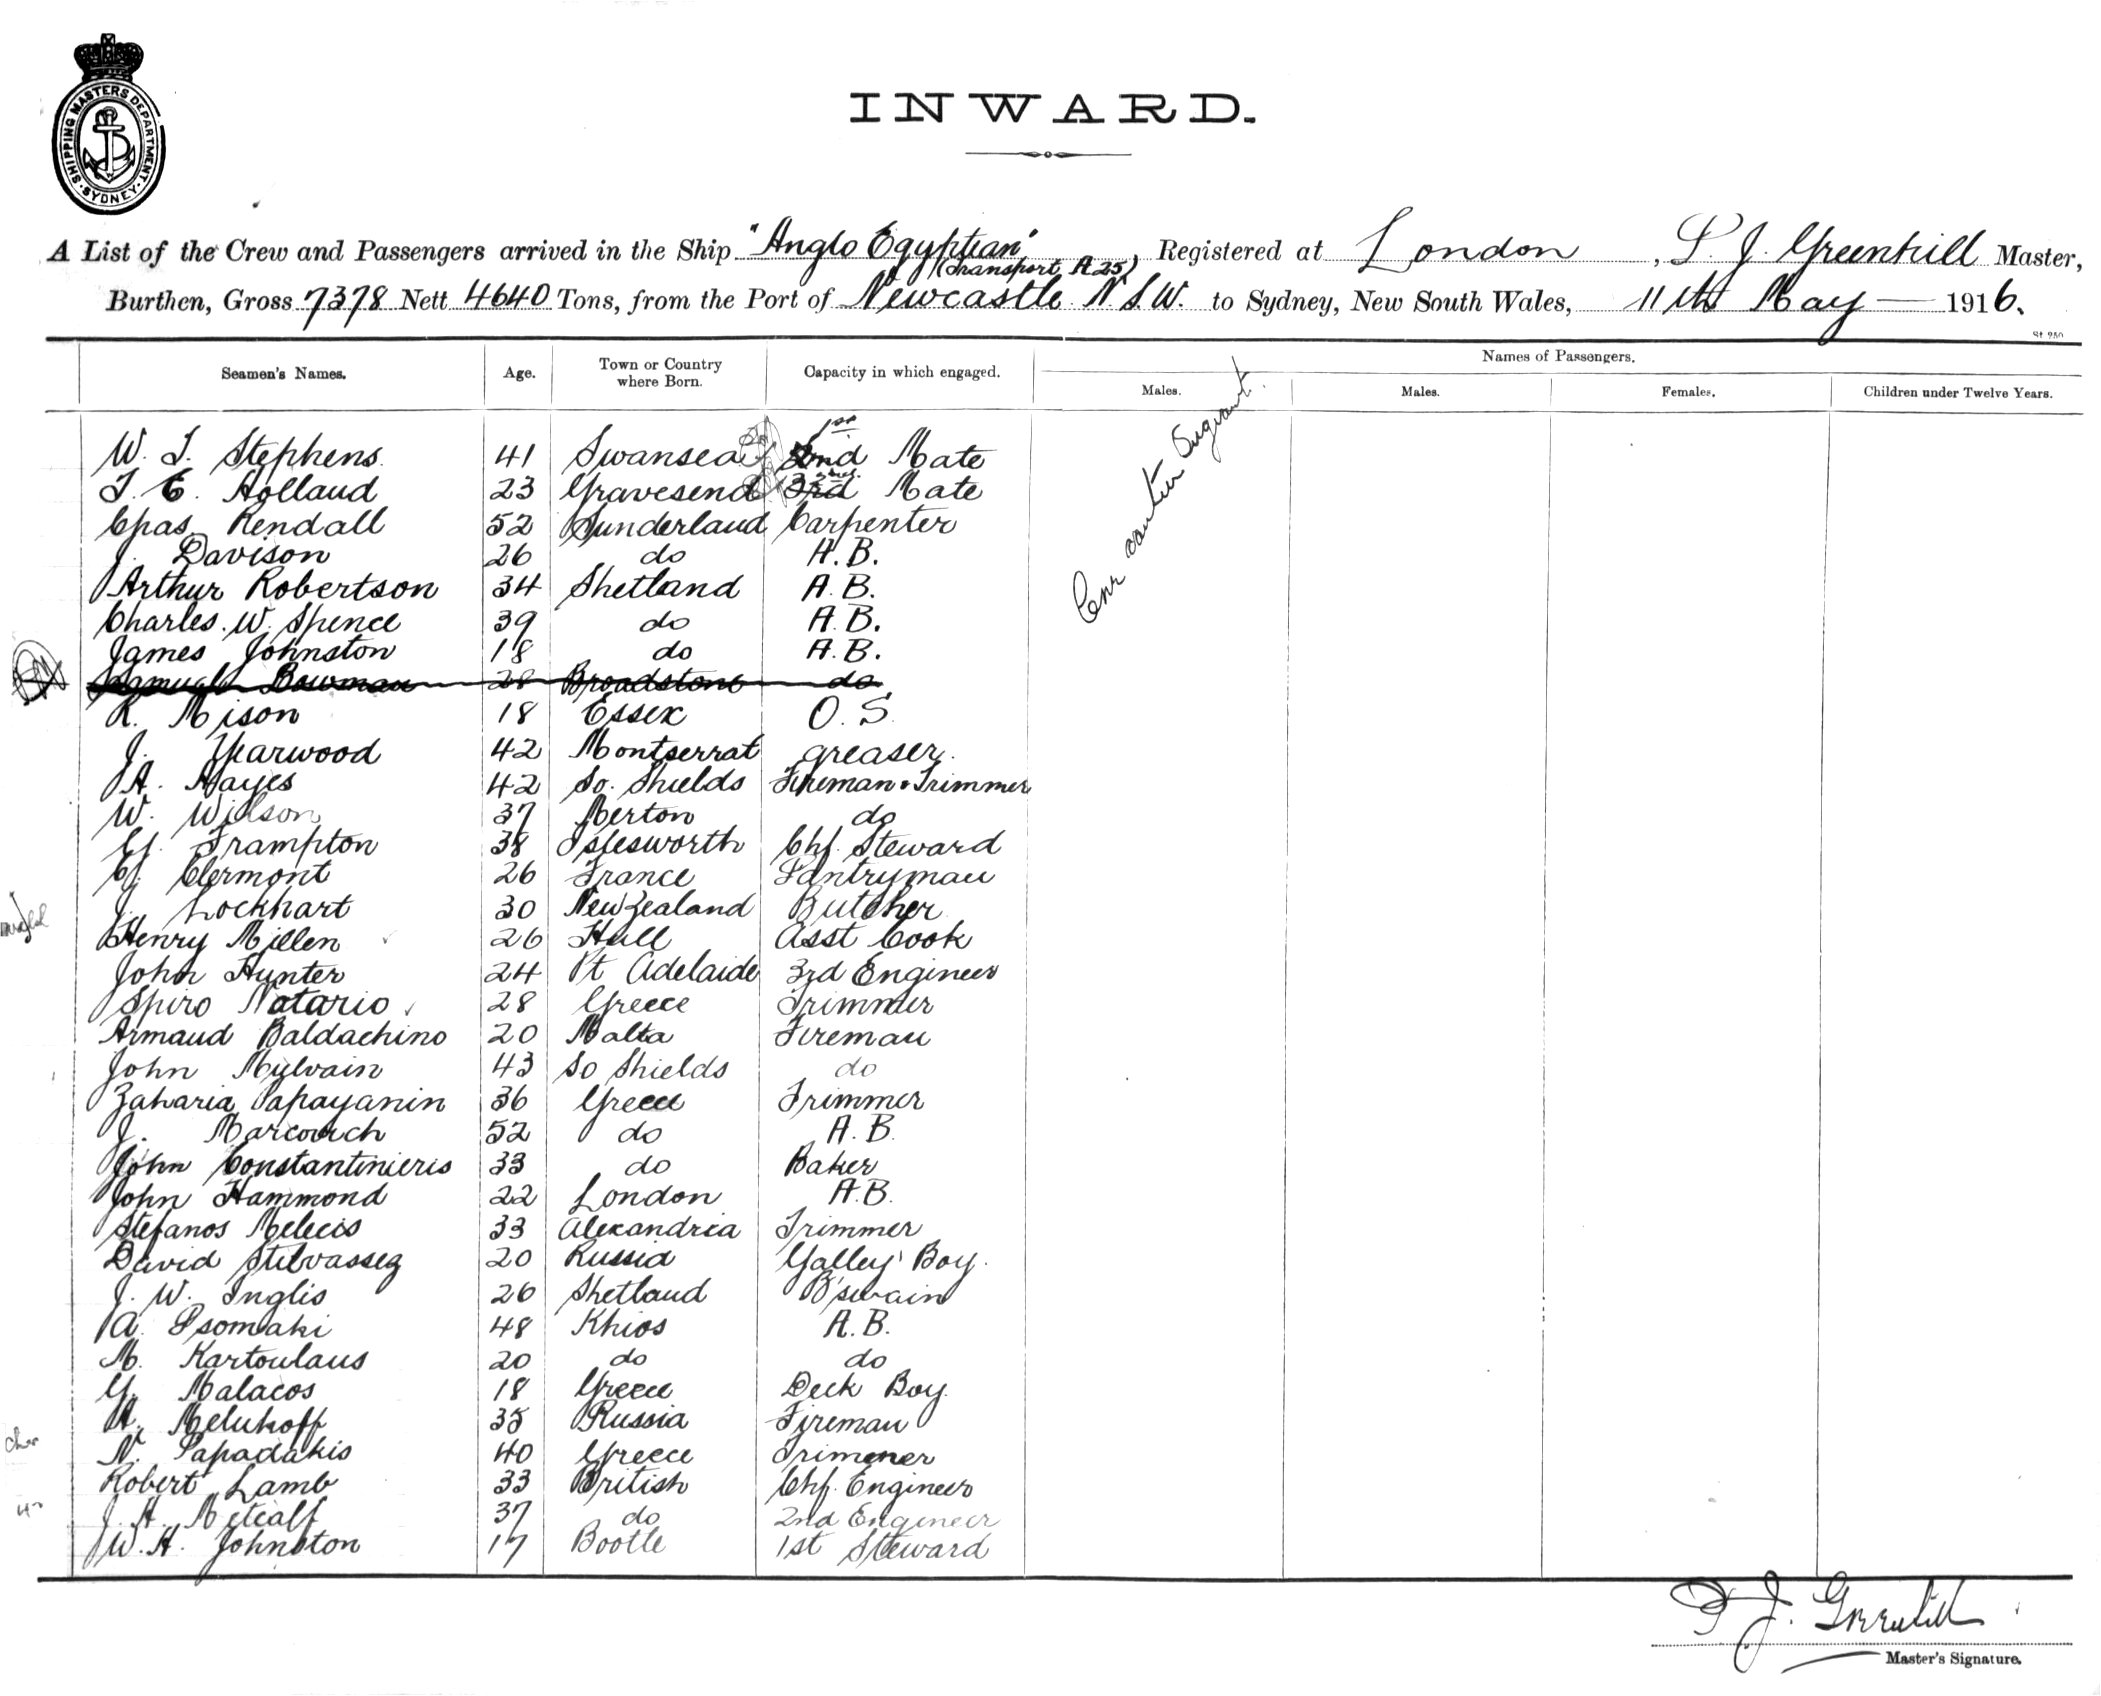 SHIPPING MASTERS DEPARTMENT
SYDNEY
INWARD.
A List of the Crew and Passengers arrived in the Ship "Anglo Egyptian" Registered at London, P. J. Greenhill Master,
(Transport A 25)
Burthen, Gross 7378 Nett 4640 Tons, from the Port of Newcastle N.S.W. to Sydney, New South Wales, 11th May — 1916.
St 250
Seamen's Names. Age. Town or Country where Born. Capacity in which engaged. Names of Passengers.
Males. Males. Females. Children under Twelve Years.
1st
W. T. Stephens 41 Swansea 2nd Mate
2nd
T. E. Holland 23 Gravesend 3rd Mate
Chas Rendall 52 Sunderland Carpenter
J. Davison 26 do A.B.
Arthur Robertson 34 Shetland A.B.
Charles. W. Spence 39 do A.B.
James Johnston 18 do A.B.
Samuel Bowman 28 Broadstone do
R. Mison 18 Essex O.S.
J. Yearwood 42 Montserrat greaser.
A. Hayes 42 So. Shields Fireman & Trimmer
W. Wilson 37 Merton do
G. Frampton 38 Islesworth Chf. Steward
G. Clermont 26 France Pantryman
J. Lockhart 30 New Zealand Butcher
Henry Millen 26 Hull Asst Cook
John Hunter 24 Pt Adelaide 3rd Engineer
Spiro Notario 28 Greece Trimmer
Armaud Baldachino 20 Malta Fireman
John Mylvain 43 So Shields do
Zaharia Papayanin 36 Greece Trimmer
J. Marcovich 52 do A.B.
John Constantinieris 33 do Baker
John Hammond 22 London A.B.
Stefanos Melecis 33 Alexandria Trimmer
David 20 Russia Galley Boy.
J. W. Inglis 26 Shetland B'swain
A. Psomaki 48 Khios A.B.
M. Kartoulaus 20 do do
G. Malacos 18 Greece Deck Boy.
A. Melukoff 35 Russia Fireman
N. Papadakis 40 Greece Trimmer
Robert Lamb 33 British Chf. Engineer
J. H. Metcalf 37 do 2nd Engineer
W. H. Johnston 17 Bootle 1st Steward
Master's Signature.